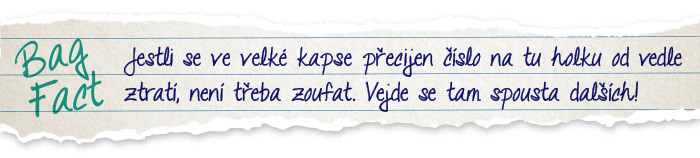 Bag Fact
Jestli se ve velké kapse přecijen číslo na tu holku od vedle
ztratí, není třeba zoufat. Vejde se tam spousta dalších!